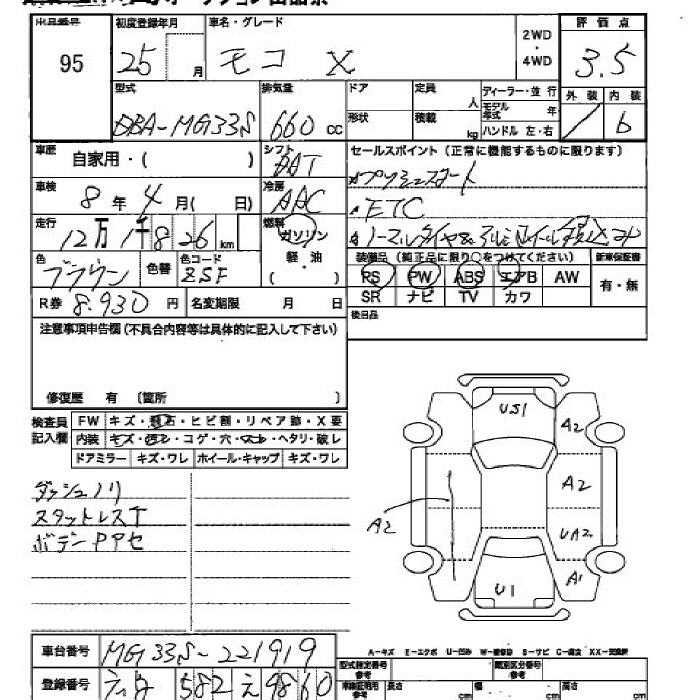 出品番号 95
初度登録年月 25 月
車名・グレード モコ X
2WD・4WD
評価点 3.5
型式 DBA-MG33S
排気量 660 cc
ドア
形状
定員 人
積載 kg
ディーラー・並行
モデル年式 年
ハンドル 左・右
外装 内装 b
車歴 自家用・( )
シフト
車検 8年 4月( 日)
冷房 AAC
走行 12万1千826km
燃料 ガソリン
軽・油
( )
色 ブラウン 色替 色コード ZSF
R券 8.930円 名変期限 月 日
セールスポイント(正常に機能するものに限ります)
プッシュスタート
ETC
ノーマルタイヤ&アルミホイール積込み
装備品(純正品に限り○をつけてください) 新車保証書
PS PW ABS エアB AW 有・無
SR ナビ TV カワ
後日品
注意事項申告欄(不具合内容等は具体的に記入して下さい)
修復歴 有 〔箇所 〕
検査員記入欄
FW キズ・飛石・ヒビ割・リペア跡・X要
内装 キズ・・コゲ・穴・・ヘタリ・破レ
ドアミラー キズ・ワレ ホイール・キャップ キズ・ワレ
ダッシュノリ
スタットレスT
ボデンPPセ
US1
A2
A2
A2
UA2
A1
U1
A-キズ E-エクボ U-凹み W-補修跡 S-サビ C-腐食 XX-交換済
車台番号 MG33S-221919
登録番号 582 え 9860
型式指定番号 参考
類別区分番号 参考
車検証明用 参考 長さ cm 幅 cm 高さ cm